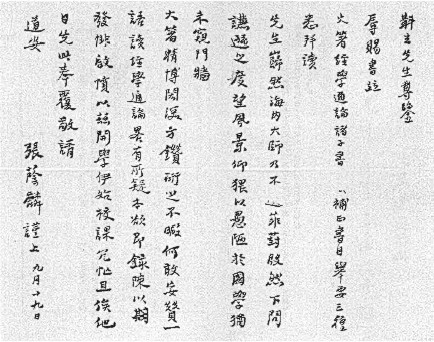 斠玄先生尊鑒
辱賜書並
大著經學通論諸子書補正書目舉要三種
悉拜讀
先生巋然海內大師乃不菲葑殷然下問
謙遜之度望風景仰猥以愚陋於國學獨
未窺門牆
大著精博閎深方鑽研之不暇何敢妄贊一
語讀經學通論畧有所疑本欲即錄陳以期
發悱啟憤以茲開學伊始校課冗忙且俟他
日先此奉覆敬請
道安 張蔭麟謹上 九月十九日